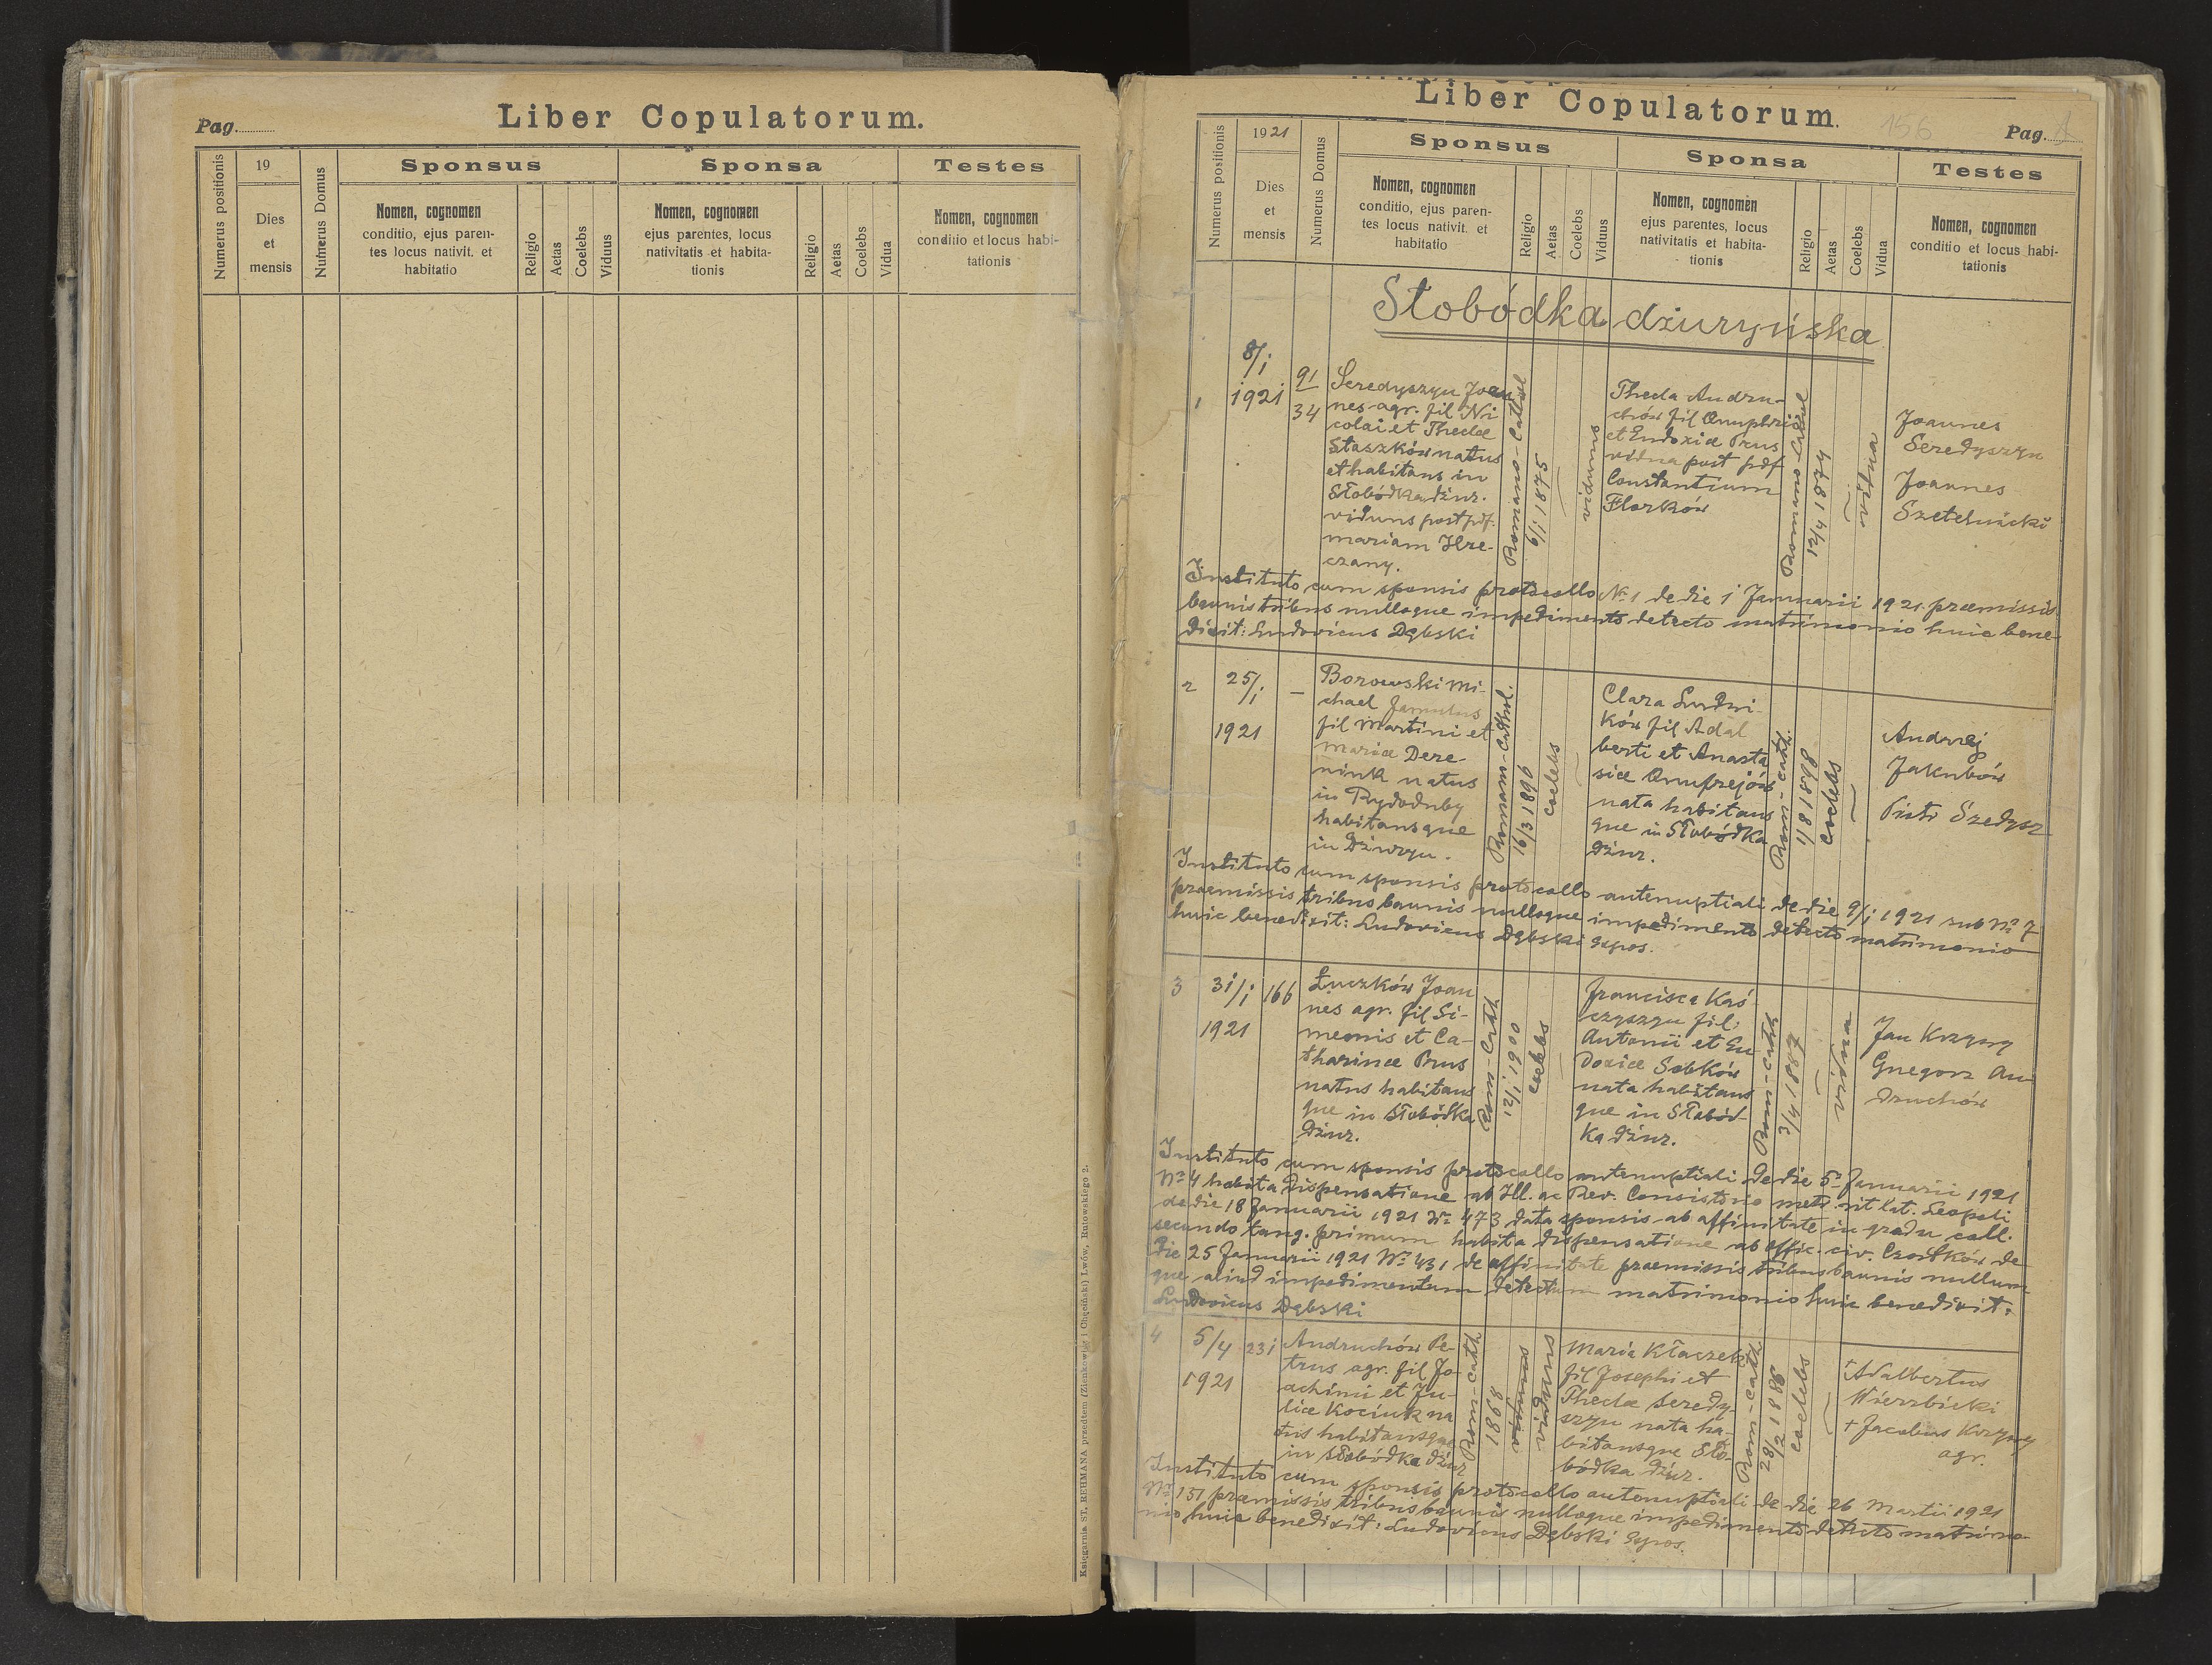 Pag.
Liber Copulatorum.
Numerus positionis
19
Dies
et
mensis
Numerus Domus
Sponsus
Nomen, cognomen
conditio, ejus paren-
tes locus nativit. et
habitatio
Religio
Aetas
Coelebs
Viduus
Sponsa
Nomen, cognomen
ejus parentes, locus
nativitatis et habita-
tionis
Religio
Aetas
Coelebs
Vidua
Testes
Nomen, cognomen
conditio et locus habi-
tationis
Księgarnia ST. REHMANA przedtem (Zienkowicz i Chęciński) Lwów, Rutowskiego 2.
Liber Copulatorum.
156
Pag. 1
Numerus positionis
1921
Dies
et
mensis
Numerus Domus
Sponsus
Nomen, cognomen
conditio, ejus paren-
tes locus nativit. et
habitatio
Religio
Aetas
Coelebs
Viduus
Sponsa
Nomen, cognomen
ejus parentes, locus
nativitatis et habita-
tionis
Religio
Aetas
Coelebs
Vidua
Testes
Nomen, cognomen
conditio et locus habi-
tationis
Słobódka dżuryńska
1
8/1
1921
91
34
Seredyszyn Joan
nes agr. fil Ni
colai et Theclae
Staszków natus
et habitans in
Słobódka dżur.
viduus post pdf.
mariam Hre-
czany.
Romano-Cathol
6/1 1875
viduus
Thecla Andru-
chów fil Onuphrii
et Eudoxia Prus
vidua post pdf
Constantium
Florków
Romano Cathol
12/4 1874
vidua
Joannes
Seredyszyn
Joannes
Szetelnicki
Instituto cum sponsis protocollo No 1 de die 1 Januarii 1921 praemissis
bannis tribus nulloque impedimento detecto matrimonio huic bene-
dixit: Ludovicus Dębski
2
25/1
1921
–
Borowski Mi-
chael famulus
fil Martini et
mariae Dere-
niuk natus
in Rydoduby
habitansque
in Dżuryn.
Romam-Cathol.
16/3 1896
coelebs
Clara Ludwi-
ków fil Adal
berti et Anasta
siae Onufrejów
nata habitans
que in Słobódka
dżur.
Rom-cath.
1/8 1898
coelebs
Andrzej
Jakubów
Piotr Szedysz
Instituto cum sponsis protocollo antenuptiali de die 9/1 1921 sub No 7
praemissis tribus bannis nulloque impedimento detecto matrimonio
huic benedixit: Ludovicus Dębski expos.
3
31/1
1921
166
Łuczków Joan
nes agr. fil Si-
meonis et Ca-
tharinae Prus
natus habitans
que in Słobódka
dżur.
Rom-Cath
12/1 1900
coelebs
Francisca Kaś-
czyszyn fil.
Antonii et Eu
doxiae Sobków
nata habitans
que in Słobód-
ka dżur.
Rom-cath
3/4 1887
vidua
Jan Krzywy
Gregorz An
druchów
Instituto cum sponsis protocollo antenuptiali de die 5 Januarii 1921
No 4 habita dispensatione ab Ill. ac Rev. Consistorio metr. rit lat. Leopoli
de die 18 Januarii 1921 No 473 data sponsis ab affinitate in gradu coll.
secundo tang. primum habita dispensatione ab offic. civ. Czortków de
die 25 Januarii 1921 No 431 de affinitate praemissis tribus bannis nullum
que aliud impedimentum detectum matrimonio huic benedixit:
Ludovicus Dębski
4
5/4
1921
231
Andruchów Pe-
trus agr. fil Jo
achimi et Ju-
liae Kociuk na
tus habitansque
in Słobódka dżur
Rom-cath
1868
viduus
viduus
Maria Kłaczek
fil Josephi et
Theclae Seredy-
szyn nata ha-
bitansque Sło-
bódka dżur.
Rom-cath
28/2 1886
coelebs
+Adalbertus
Wierzbicki
+ Jacobus Krzywy
agr.
Instituto cum sponsis protocollo antenuptiali de die 26 Martii 1921
No 151 praemissis tribus bannis nulloque impedimento detecto matrimo-
nio huic benedixit: Ludovicus Dębski expos.